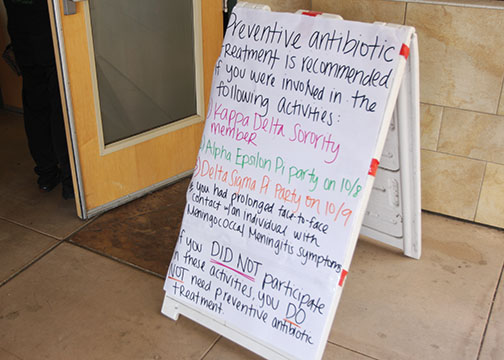 Preventive antibiotic
treatment is recommended
if you were involved in the
following activities:
Kappa Delta Sorority
member
Alpha Epsilon Pi party on 10/8
Delta Sigma Pi Party on 10/9
you had prolonged face-to-face
contact w/an individual with
Meningococcal Meningitis symptoms
If you DID NOT participate
in these activities, you DO
NOT need preventive antibiotic
treatment.